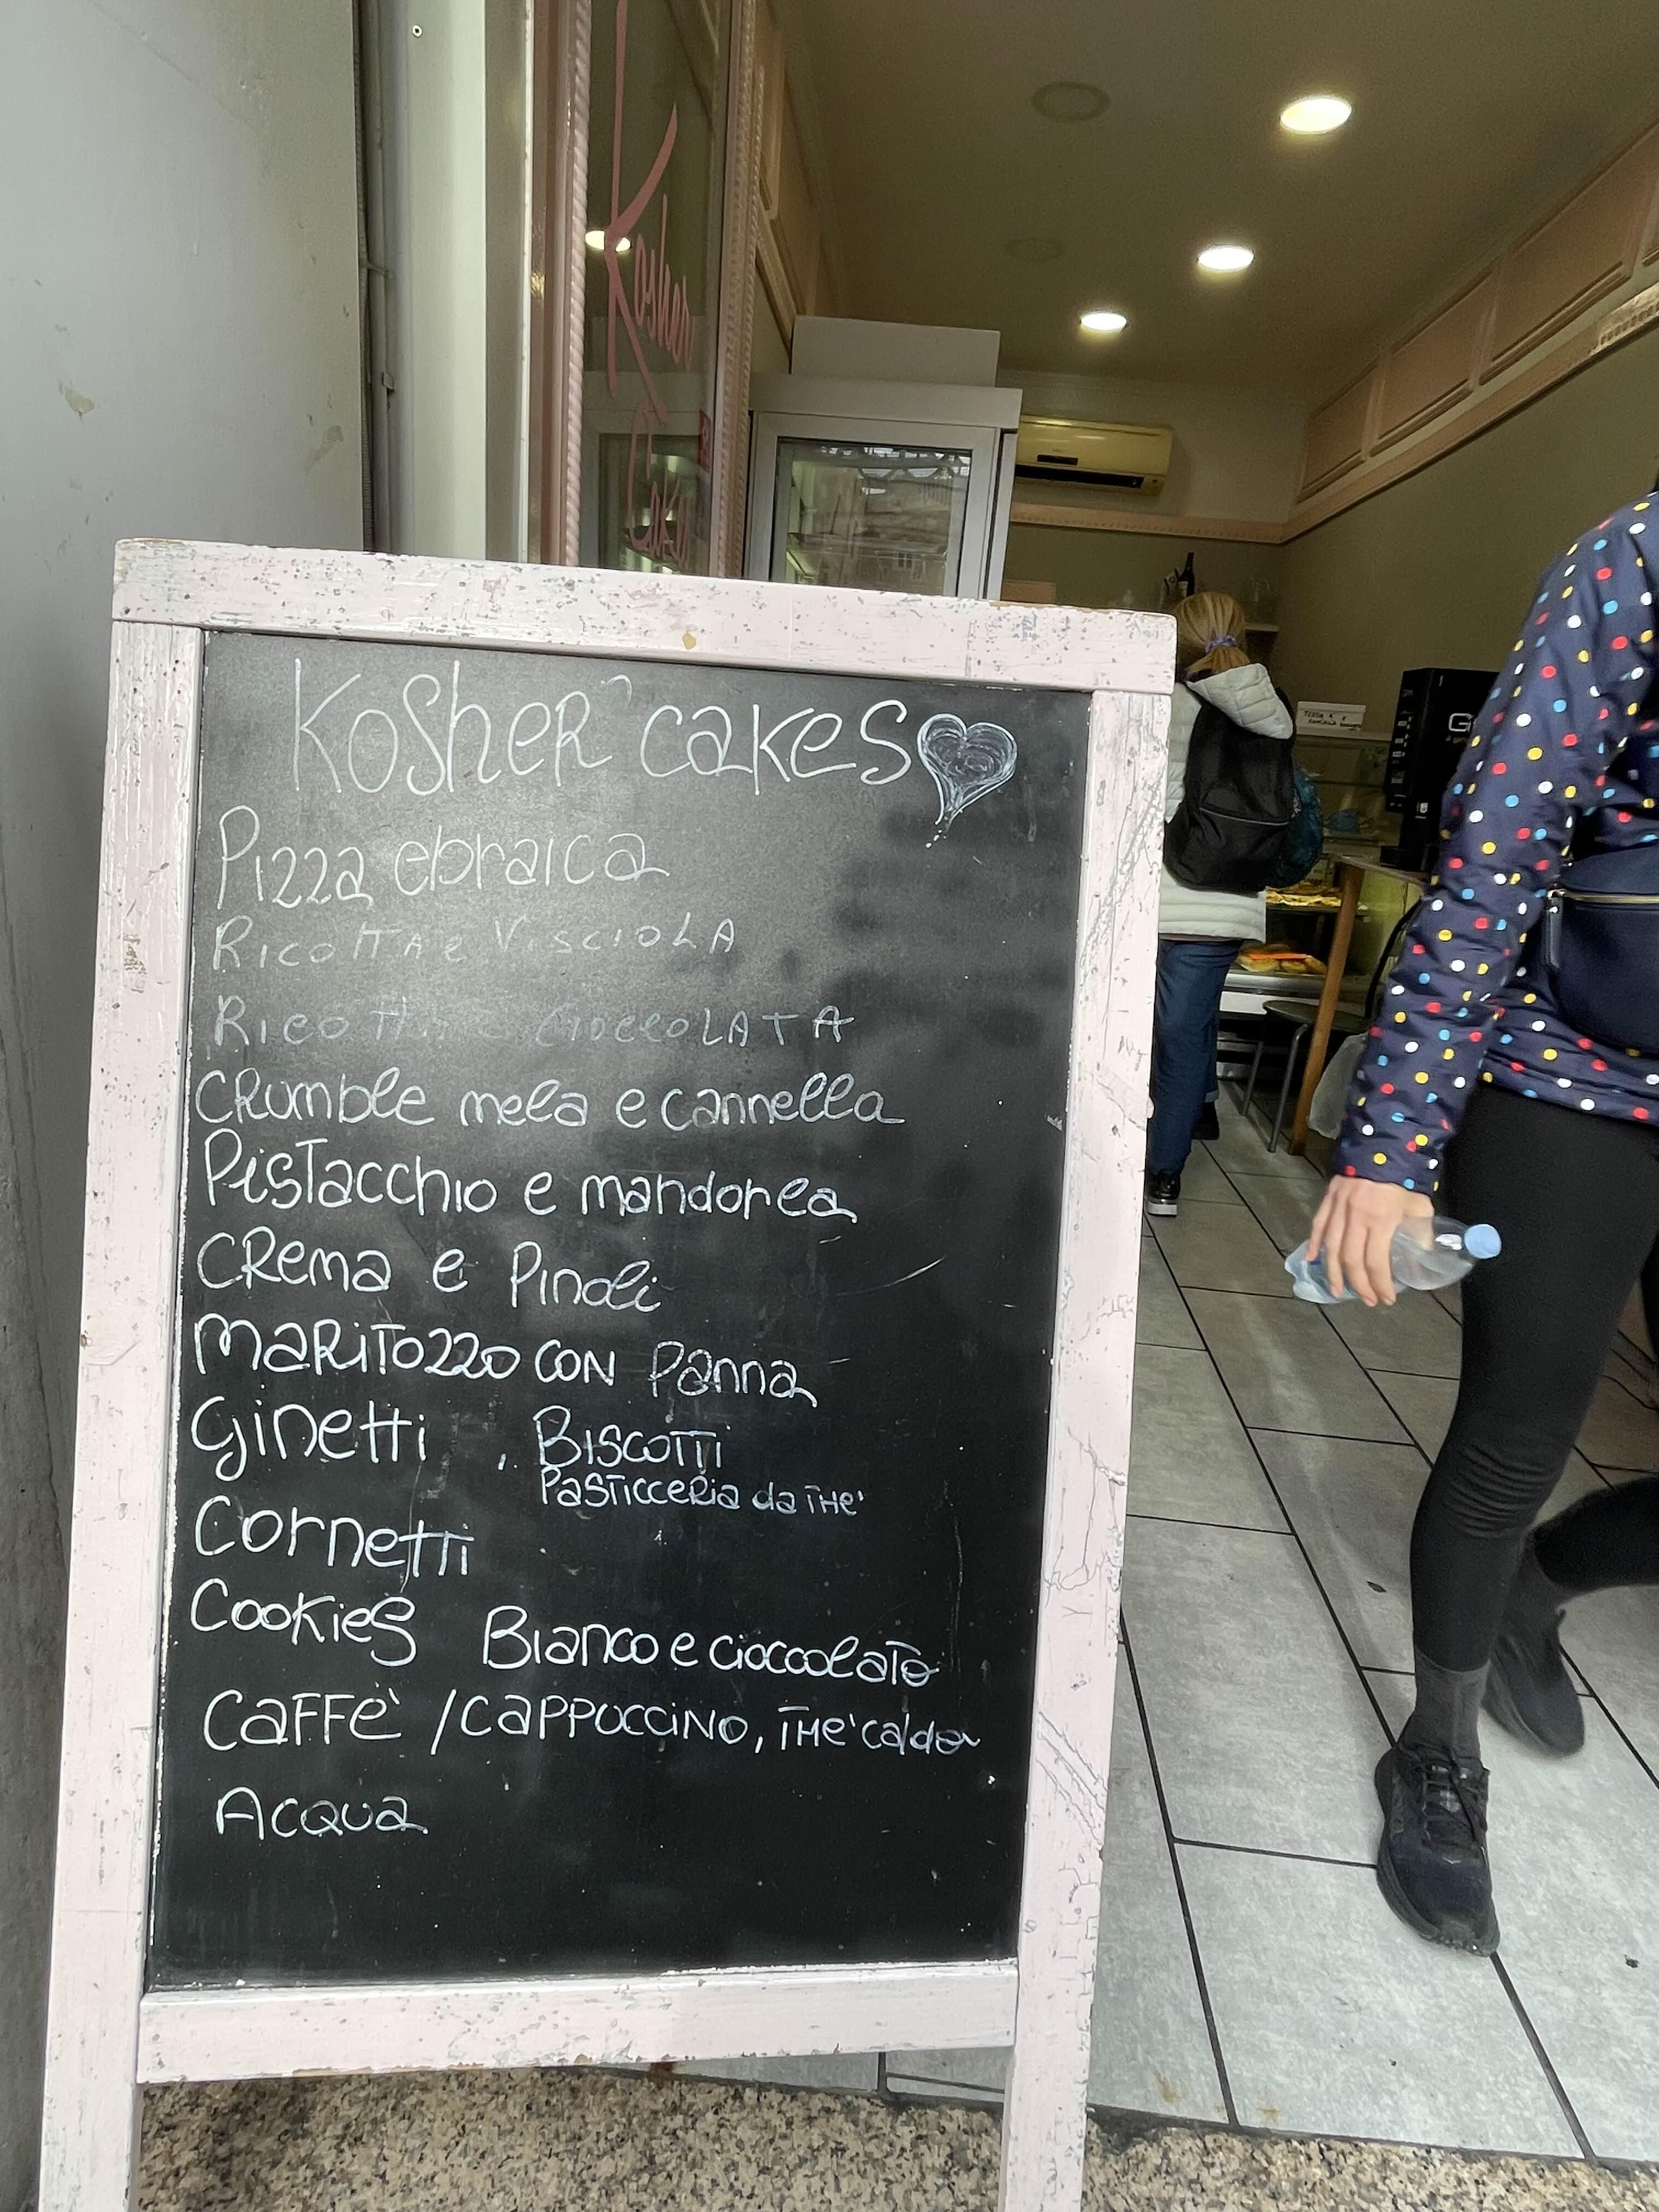 Kosher
Cake
Kosher cakes
Pizza ebraica
Ricotta e Visciola
Ricotta e cioccolata
Crumble mela e cannella
Pistacchio e mandorla
Crema e Pinoli
Maritozzo con Panna
Ginetti , Biscotti
Pasticceria da The'
Cornetti
Cookies Bianco e cioccolato
Caffè / Cappuccino, The' caldo
Acqua